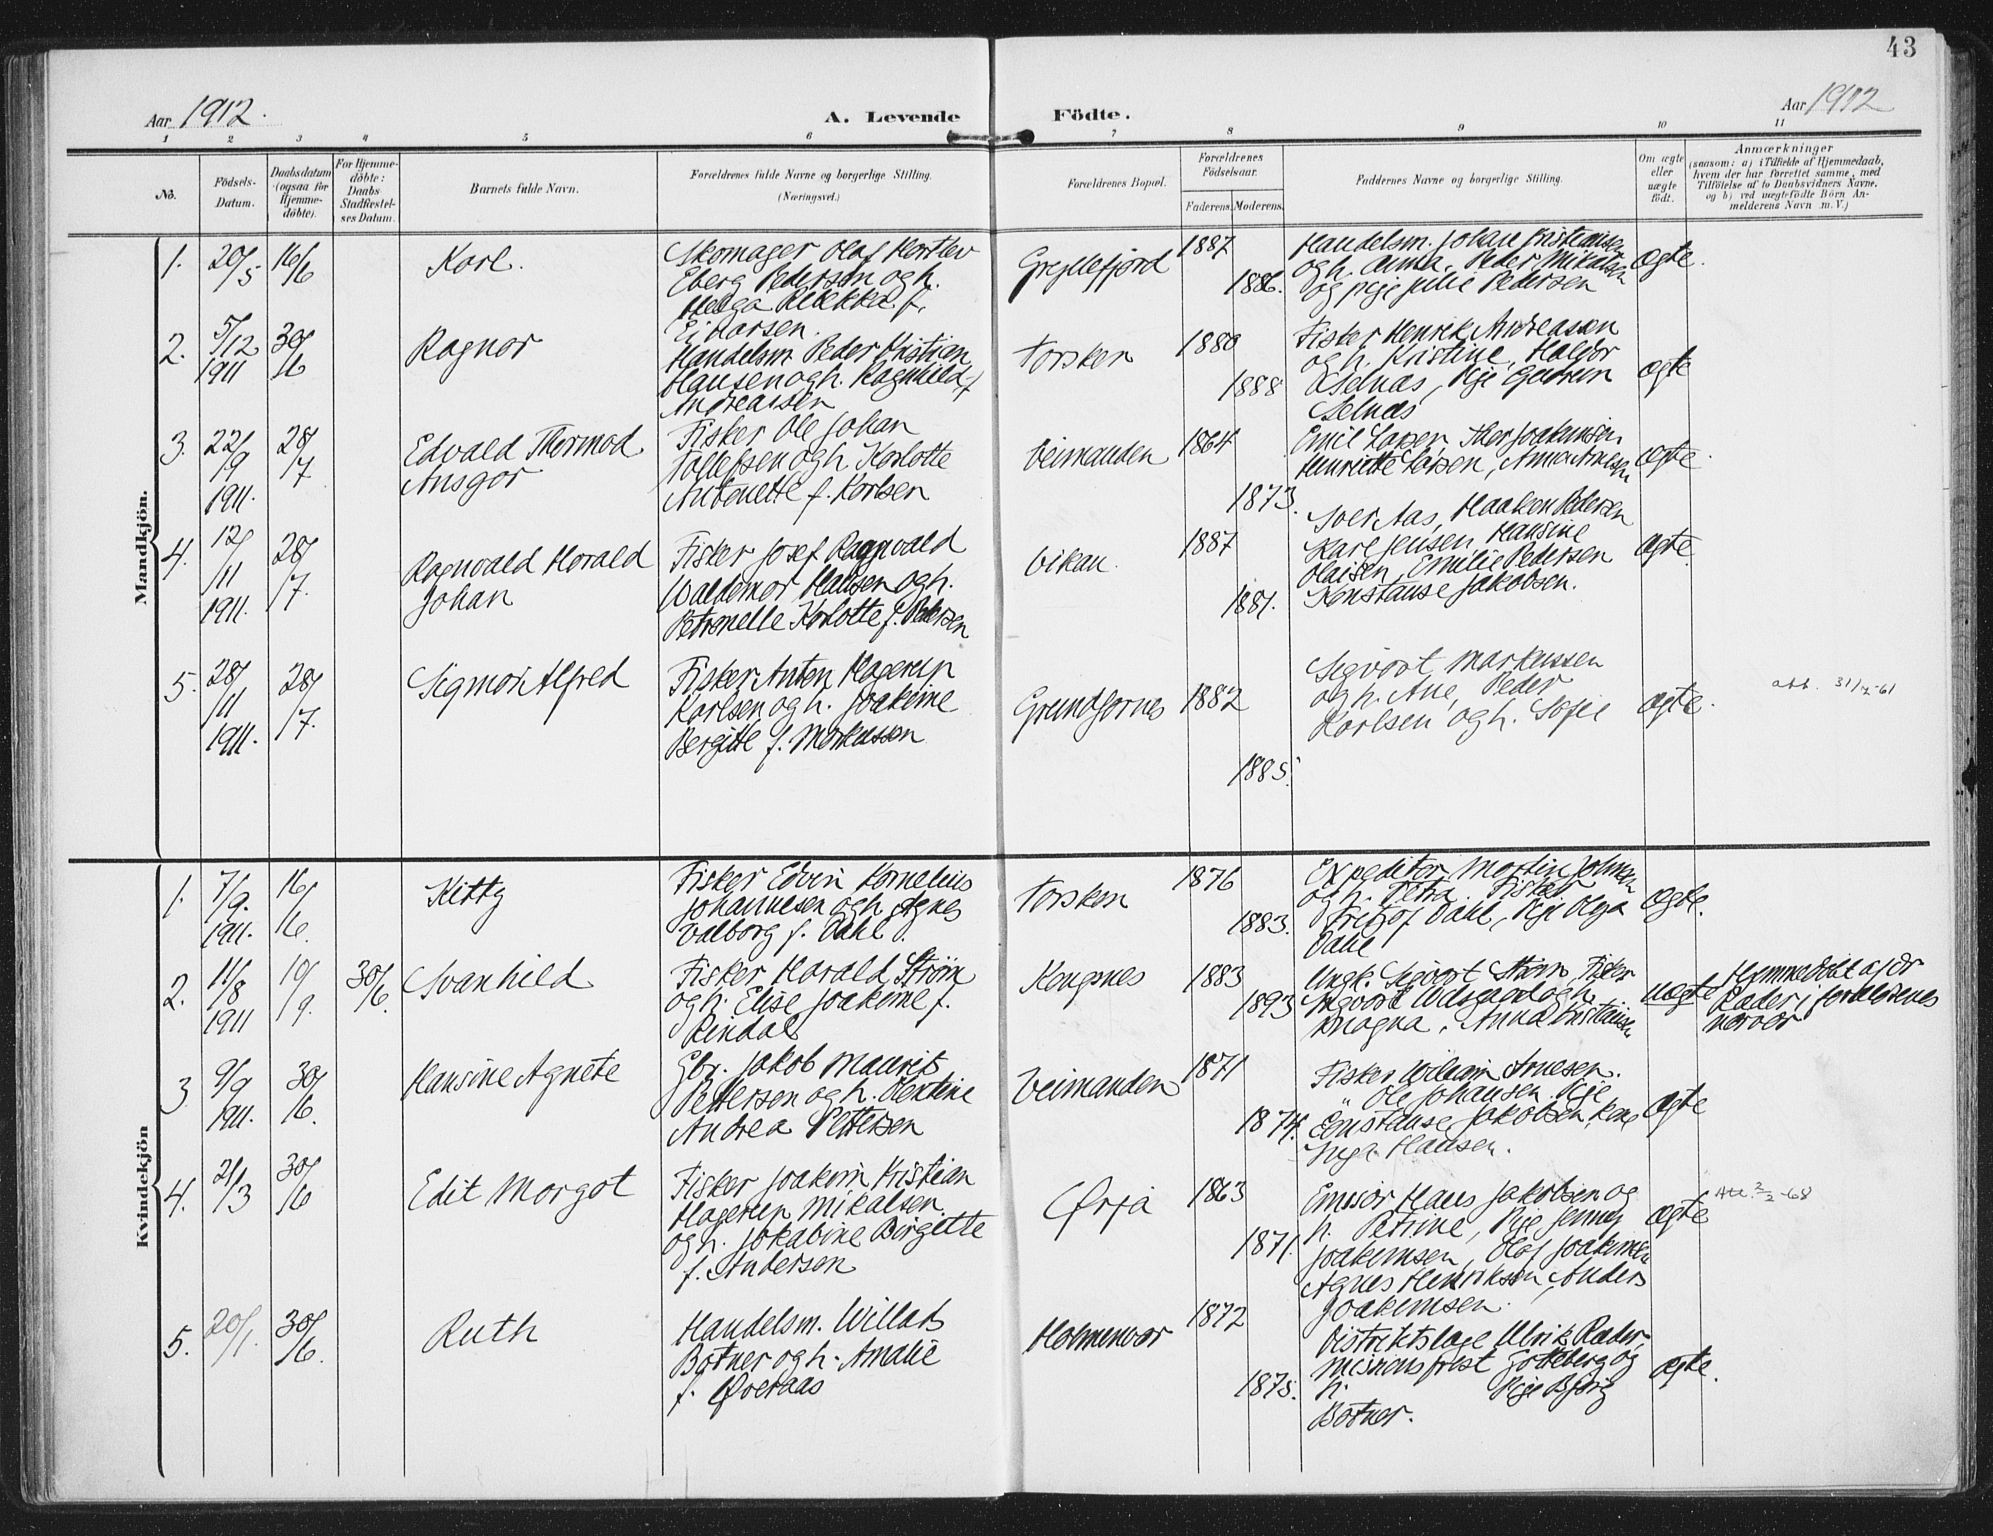 43
Aar 1912.
A. Levende Födte.
Aar 1912
1 2 3 4 5 6 7 8 9 10 11
No.
Födsels-
Datum.
Daabsdatum
(ogsaa for
Hjemme-
döbte).
For Hjemme-
döbte:
Daabs
Stadfæstel-
ses Datum.
Barnets fulde Navn.
Forældrenes fulde Navne og borgerlige Stilling.
(Næringsvei.)
Forældrenes Bopæl.
Forældrenes
Födselsaar.
Faderens. Moderens.
Faddernes Navne og borgerlige Stilling.
Om ægte
eller
uægte
födt.
Anmærkninger
(saasom: a) i Tilfælde af Hjemmedaab,
hvem der har forrettet samme, med
Tilföielse af to Daabsvidners Navne,
og b) ved uægtefödte Börn An-
melderens Navn m. V.)
Mandkjön.
1. 20/5 16/6
Karl.
Skomager Olaf Hartlev
Eberg Pedersen og h.
Helga Rebekka f.
Ejdarsen.
Gryllefjord
1887
1886.
Handelsm. Johan Kristiansen
og h. Anna, Peder Mikalsen
og pige Julie Pedersen
ægte.
2. 5/12 1911 30/6
Ragnar
Handelsm Peder Kristian
Hansen og h. Ragnhild f
Andreassen
Torsken
1880
1888
Fisker Henrik Andreassen
og h. Kristine, Haldor
Selnæs, Pige Gudrun
Selnæs
ægte
3. 22/9 1911. 28/7
Edvald Thormod
Ansgar
Fisker Ole Johan
Tollefsen og h. Karlotte
Antonette f. Karlsen
Veimanden
1864
1873.
Emil Larsen, Peder Joakimsen
Henriette Larsen, Anna Arnesen
ægte.
4. 12/11 1911. 28/7.
Ragnvald Harald
Johan
Fisker Josef Ragnvald
Waldemar Hansen og h.
Petronelle Karlotte f. Pedersen
Vikan.
1887
1887.
Iver Aas, Haakon Pedersen
Karl Jensen, Hansine
Olaisen, Emilie Pedersen
Konstanse Jakobsen.
ægte.
5. 28/11 1911. 28/7.
Sigmor Alfred
Fisker Anton Hagerup
Karlsen og h. Joakime
Bergitte f. Markussen
Grundfarnes
1882
1885.
Sigvart Markussen
og h. Ane, Peder
Karlsen og h. Sofie
ægte.
att. 31/7-61
Kvindekjön
1. 7/9. 1911. 16/6.
Kitty
Fisker Edvin Kornelius
Johannesen og h. Agnes
Valborg f. Dahl.
Torsken
1876
1883.
Expeditör Martin Johnsen
og h. Petra, Fisker
Fritjof Dahl, Pige Olga
Dahl
ægte.
2. 11/8 1911 10/9. 30/6.
Svanhild
Fisker Harald Ström
og h. Elise Joakime f.
Rindal
Kongsnes
1883
1893
Ungk. Sigvart Ström, Fisker
Sigvart Udsgaard og h.
Magna, Anna Kristiansen
uægte
Hjemmedöbt a
Rader i forældrenes
nærvær
3. 9/9 1911. 30/6.
Hansine Agnete
Gbr. Jakob Maurits
Pettersen og h. Hertine
Andrea Pettersen
Veimanden
1871
1874.
Fisker William Arnesen.
" Ole Johansen. Pige
Constanse Jakobsen, kone
Inga Hansen.
ægte
4. 21/3 30/6
Edit Margot
Fisker Joakim Kristian
Hagerup Mikalsen
og h. Jokabine Birgitte
f. Andersen
Örja
1863
1871.
Emisær Hans Jakobsen og
h. Petrine, Pige Jenny
Joakimsen, Olaf Joakimsen
Agnes Henriksen, Anders
Joakimsen.
ægte
Att. 2/2-68
5. 20/1. 30/6.
Ruth
Handelsm. Willads
Botner og h. Amalie
f. Överaas
Holmenvær
1872
1875.
Distriktslæge Ulrik Rader,
Misionsprest Gotteberg og
h. Pige Björg
Botner.
ægte.